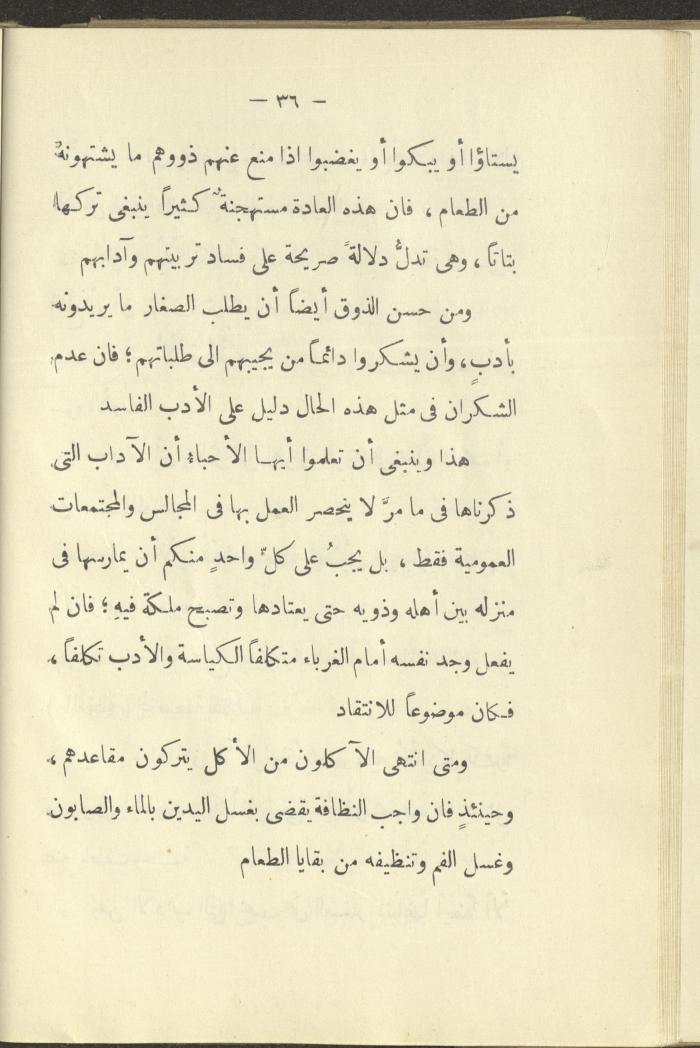 — ٣٦ —
يستاؤا أو يبكوا أو يغضبوا اذا منع عنهم ذووهم ما يشتهونهُ
من الطعام ، فان هذه العادة مستهجنةٌ كثيراً ينبغى تركها
بتاتاً ، وهى تدلُّ دلالةً صريحة على فساد تربيتهم وآدابهم
ومن حسن الذوق أيضاً أن يطلب الصغار ما يريدونه
بأدبٍ ، وأن يشكروا دائماً من يجيبهم الى طلباتهم ؛ فان عدم
الشكران فى مثل هذه الحال دليل على الأدب الفاسد
هذا وينبغى أن تعلموا أيها الأحباء أن الآداب التى
ذكرناها فى ما مرَّ لا ينحصر العمل بها فى المجالس والمجتمعات
العمومية فقط ، بل يجبُ على كلّ واحدٍ منكم أن يمارسها فى
منزله بين أهله وذويه حتى يعتادها وتصبح ملكة فيهِ ؛ فان لم
يفعل وجد نفسه أمام الغرباء متكلفاً الكياسة والأدب تكلفاً ،
فكان موضوعاً للانتقاد
ومتى انتهى الآكلون من الأكل يتركون مقاعدهم ،
وحينئذٍ فان واجب النظافة يقضى بغسل اليدين بالماء والصابون
وغسل الفم وتنظيفه من بقايا الطعام